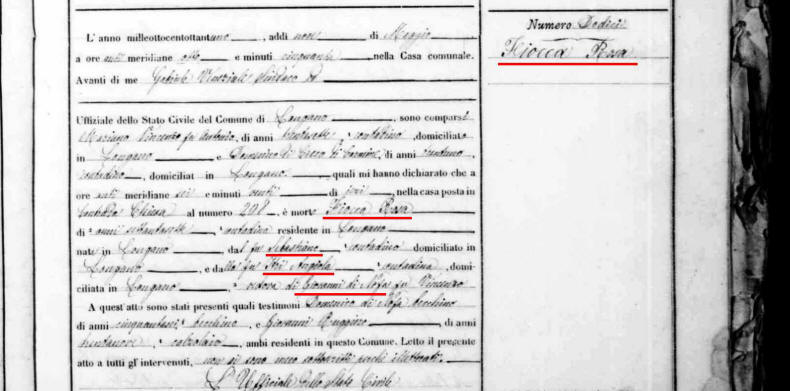 L'anno milleottocentottantuno, addì nove di Maggio
a ore anti meridiane otto e minuti cinquanta, nella Casa comunale.
Avanti di me Gabriele Sindaco
Uffiziale dello Stato Civile del Comune di Longano, sono comparsi
Mariano Vincenzo fu Antonio, di anni trentasette, contadino, domiciliato
in Longano e Domenico di Cicco di Carmine, di anni trentuno,
contadino, domiciliat in Longano, quali mi hanno dichiarato che a
ore anti meridiane sei e minuti venti di jeri, nella casa posta in
Contrada Chiesa al numero 208, è morta Fiocca Rosa
di anni settantasette, contadina residente in Longano
nata in Longano, dal fu Sebastiano, contadino domiciliato in
Longano, e dalla fu Angiola contadina, domi-
ciliata in Longano, vedova di Giovanni di Nofa fu Vincenzo
A quest'atto sono stati presenti quali testimoni Domenico di Nofa becchino
di anni cinquantasei, becchino, e Giovanni Ruggiero, di anni
trentanove, calzolaio, ambi residenti in questo Comune. Letto il presente
atto a tutti gl' intervenuti, non si sono meco sottoscritti perchè illetterati.
L'Uffiziale dello Stato Civile
Numero Dodici
Fiocca Rosa